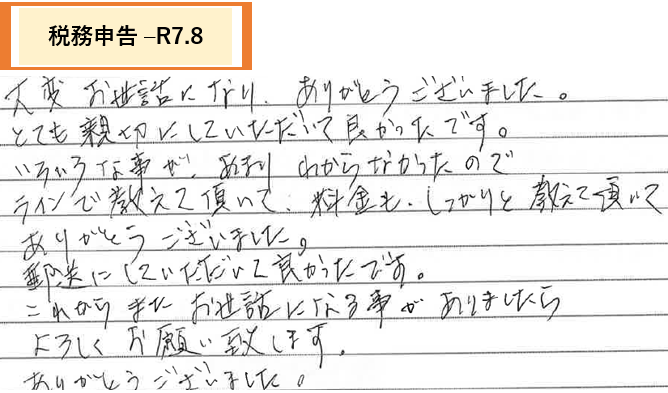 税務申告 –R7.8
大変 お世話になり、ありがとうございました。
とても親切にしていただいて良かったです。
いろいろな事が、あまり わからなかったので
ラインで教えて頂いて、料金も、しっかりと教えて頂いて
ありがとうございました。
郵送にしていただいて良かったです。
これから また お世話になる事が ありましたら
よろしく お願い致します。
ありがとうございました。